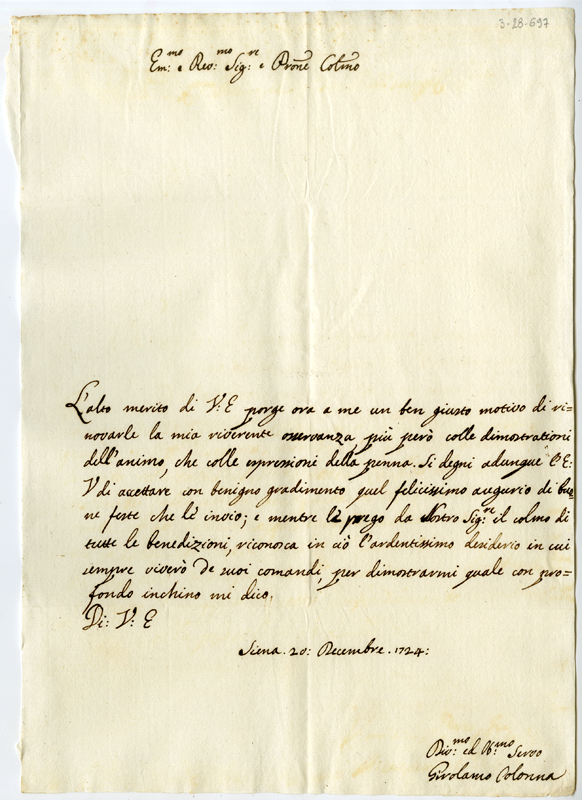 3-28-697
Em:mo e Rev:mo Sig:re e Prone Colmo
L'alto merito di V: E porge ora a me un ben giusto motivo di ri=
novarle la mia riverente osservanza, più però colle dimostrationi
dell'animo, che colle espressioni della penna. Si degni adunque l'E:
V di accettare con benigno gradimento quel felicissimo augurio di buo=
ne feste che le invio; e mentre le prego da Nostro Sig:re il colmo di
tutte le benedizioni, riconosca in ciò l'ardentissimo desiderio in cui
sempre viverò de suoi comandi, per dimostrarmi quale con pro=
fondo inchino mi dico.
Di: V: E
Siena. 20: Decembre. 1724:
Div:mo ed Ob:mo Servo
Girolamo Colonna